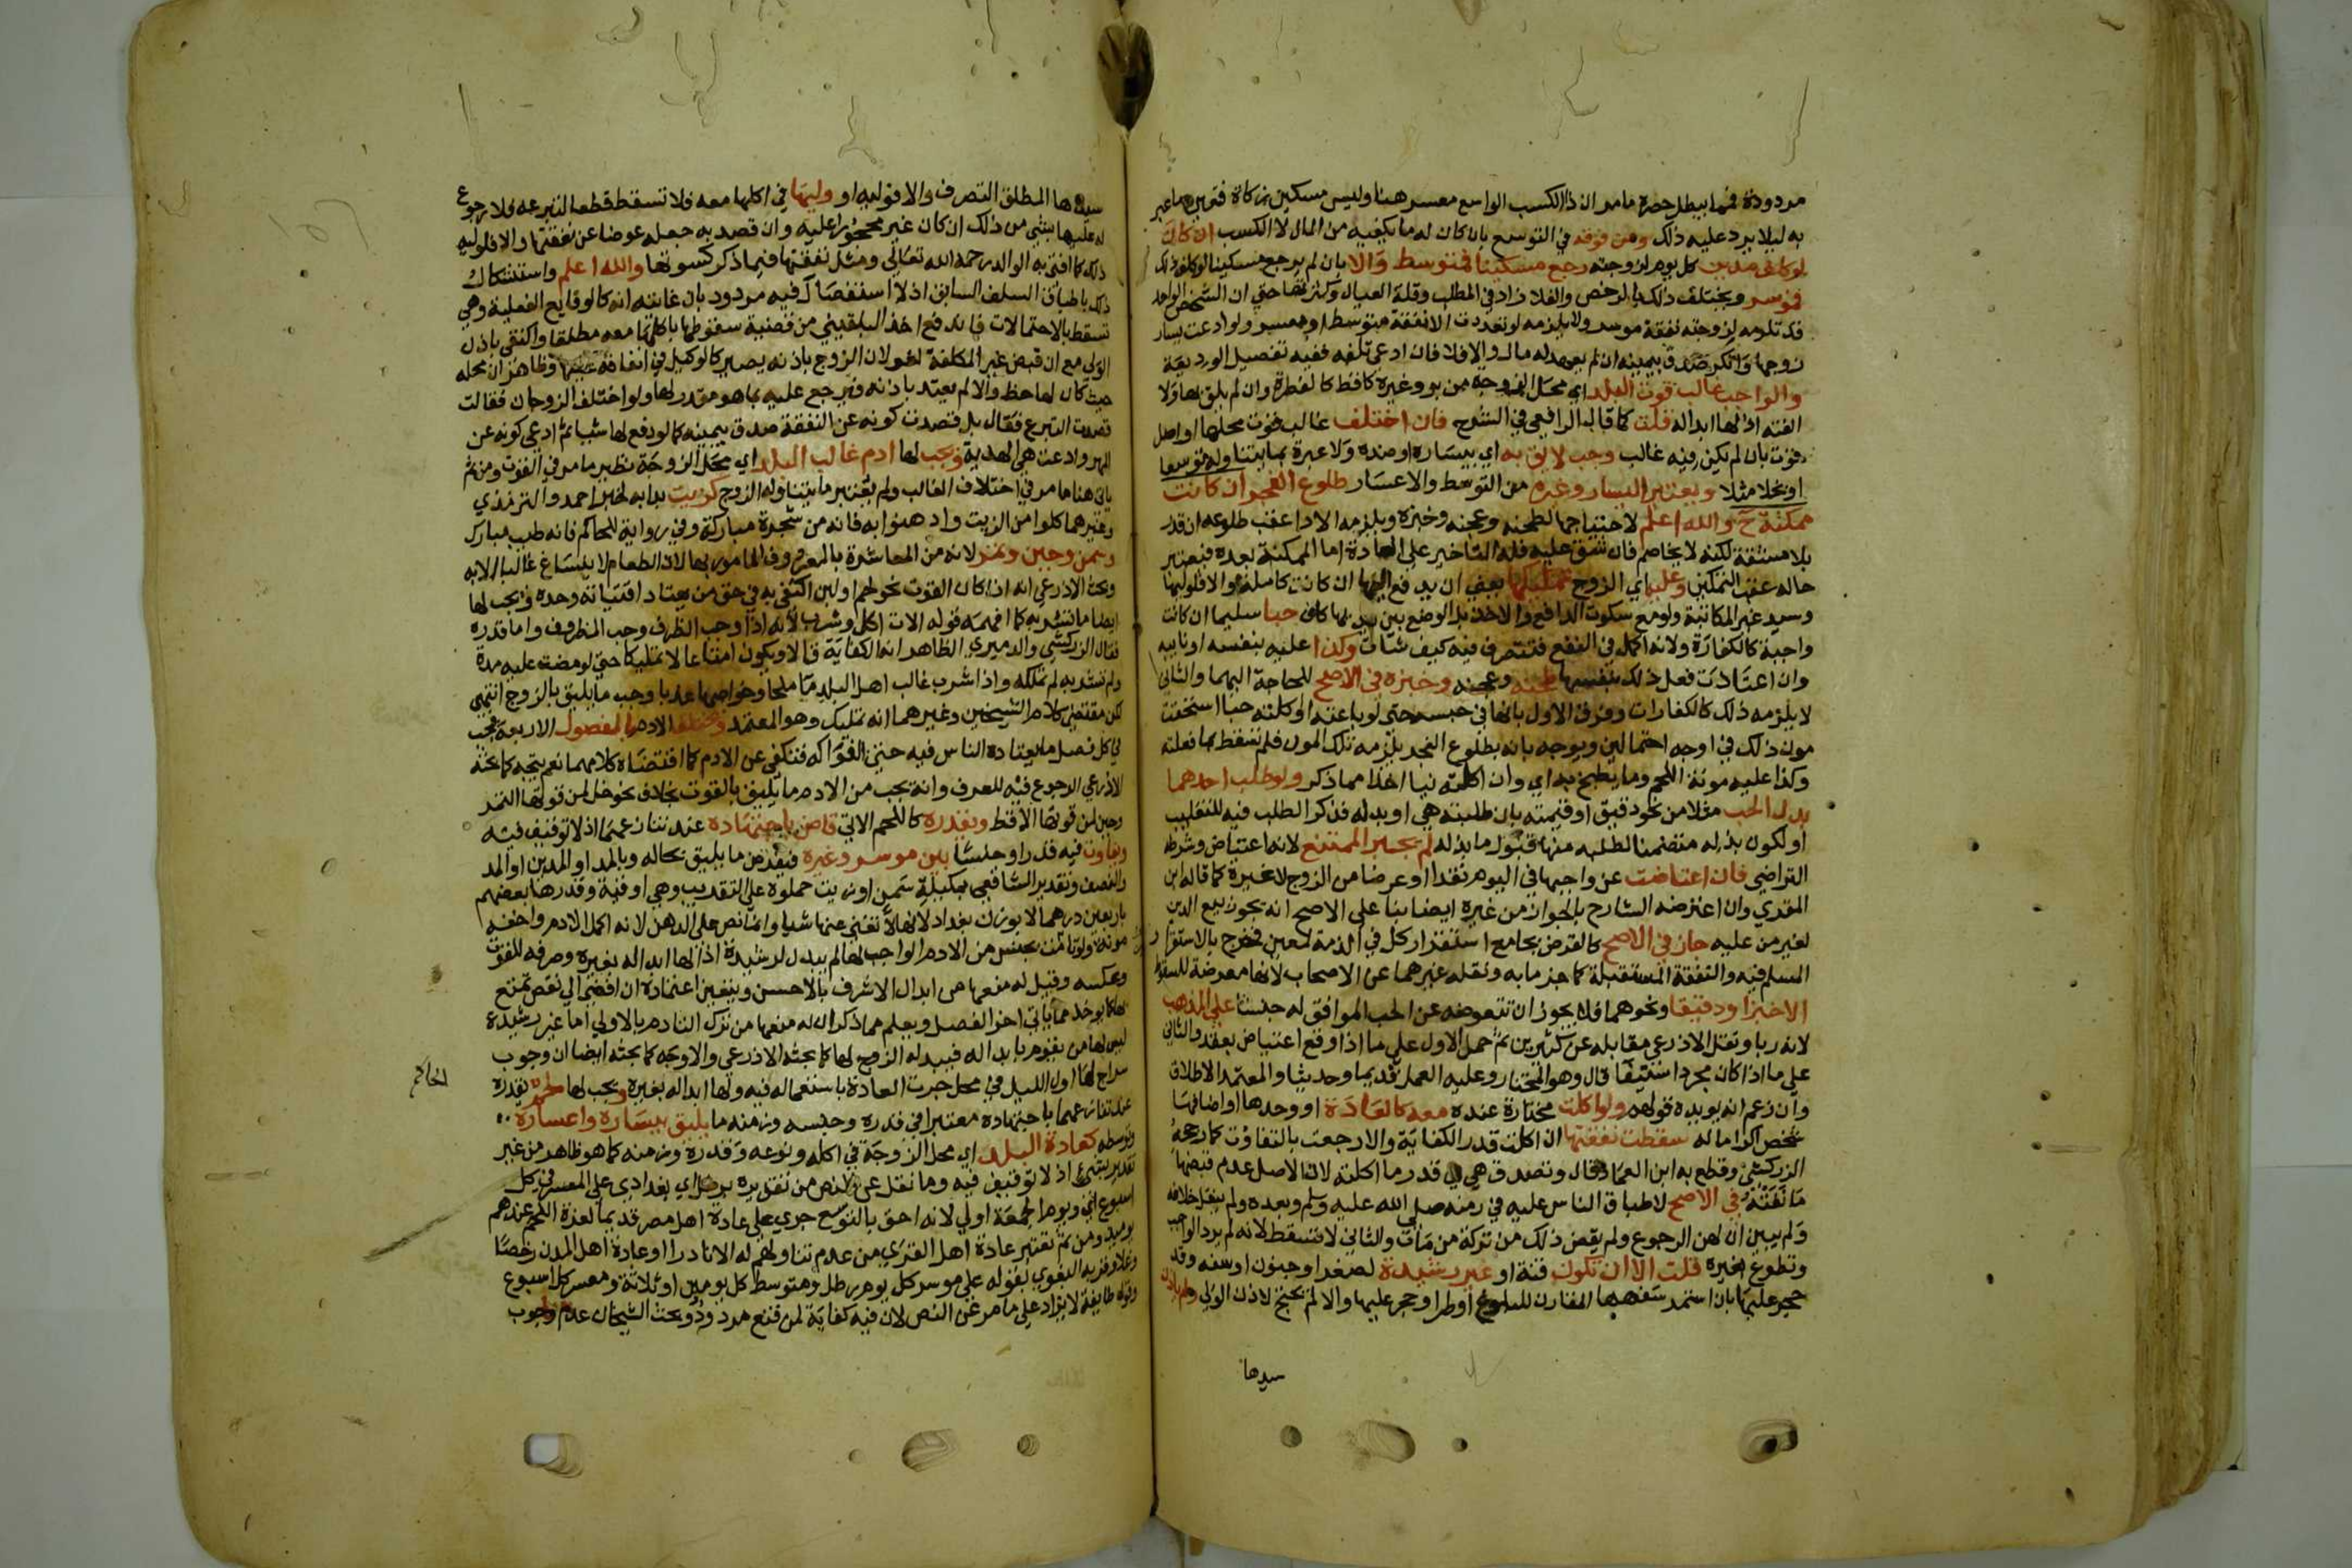 مردودة فيهما ببطل حصره مامر ان ذا الكسب الواسع معسر هنا وليس مسكين زكاة فتعين ما عبر
به ليلا يرد عليه ذلك ومن فوقه في التوسع بان كان له ما يكفيه من المال لا الكسب ان كان
لو كلف مدين كل يوم لزوجته رجع مسكينا فمتوسط والا بان لم يرجع مسكينا لو كلف ذلك
فموسر ويختلف ذلك بالرخص والغلا زاد في المطلب وقلة العيال وكثرتها حتى ان الشخص الواحد
قد تلزمه لزوجته نفقة موسر ولا يلزمه لو تعددت الا نفقة متوسط او معسر ولو ادعت يسار
زوجها وانكر صدق بيمينه ان لم يعهد له مال والا فلا فان ادعى تلفه ففيه تفصيل الوديعة
والواجب غالب قوت البلد اي محل الزوجة من بر وغيره كاقط كالفطرة وان لم يلق بها ولا
الفته اذ لها ابداله قلت كما قاله الرافعي في الشرح فان اختلف غالب قوت محلها او اصل
قوت بان لم يكن فيه غالب وجب لايق به اي بيساره او ضده ولا عبرة بما يتناوله توسعا
او بخلا مثلا ويعتبر اليسار وغيره من التوسط والاعسار طلوع الفجر ان كانت
ممكنة ح والله اعلم لاحتياجها لطحنه وعجنه وخبزه ويلزمه الادا عقب طلوعه ان قدر
بلا مشقة لكنه لا يخاصم فان شق عليه فله التاخير على العادة اما الممكنة بعده فيعتبر
حاله عقب التمكين وعليه اي الزوج تمليكها يعني ان يدفع اليها ان كانت كاملة والا فلوليها
وسيد غير المكاتبة ولو مع سكوت الدافع والاخذ بل الوضع بين يديها كاف حبا سليما ان كانت
واجبة كالكفارة ولانه اكمل في النفع فتتصرف فيه كيف شات وكذا عليه بنفسه او نايبه
وان اعتادت فعل ذلك بنفسها طحنه وعجنه وخبزه في الاصح للحاجة اليها والثاني
لا يلزمه ذلك كالكفارات وفرق الاول بانها في حبسه حتى لو باعته او اكلته حبا استحقت
مون ذلك في اوجه احتمالين ويوجه بانه بطلوع الفجر يلزمه تلك المون فلم تسقط بما فعلته
وكذا عليه مونة اللحم وما يطبخ به اي وان اكلته نيا اخذا مما ذكر ولو طلب احدهما
بدل الحب مثلا من نحو دقيق او قيمته بان طلبته هي او بذله فذكر الطلب فيه للتغليب
او لكون بذله متضمنا لطلبه منها قبول ما بذله لم يجبر الممتنع لانه اعتياض وشرطه
التراضي فان اعتاضت عن واجبها في اليوم نقدا او عرضا من الزوج لا غيره كما قاله ابن
المقري وان اعترضه الشارح بالجواز من غيره ايضا بنا على الاصح انه يجوز بيع الدين
لغير من عليه جاز في الاصح كالقرض بجامع استقرار كل في الذمة لمعين فخرج بالاستقرار
المسلم فيه والنفقة المستقبلة كما جزما به ونقله غيرهما عن الاصحاب لانها معرضة للسقوط
الا خبزا ودقيقا ونحوهما فلا يجوز ان تتعوضه عن الحب الموافق له جنسا على المذهب
لانه ربا ونقل الاذرعي مقابله عن كثيرين ثم حمل الاول على ما اذا وقع اعتياض بعقد والثاني
على ما اذا كان مجرد استيفا قال وهو المختار وعليه العمل قديما وحديثا والمعتمد الاطلاق
وان زعم انه يويده قولهم ولو اكلت مختارة عنده معه كالعادة او وحدها او اضافها
شخص اكراما له سقطت نفقتها ان اكلت قدر الكفاية والا رجعت بالتفاوت كما رجحه
الزركشي وقطع به ابن العماد قال وتصدق هي في قدر ما اكلته لان الاصل عدم قبضها
ما نفته في الاصح لاطباق الناس عليه في زمنه صلى الله عليه وسلم وبعده ولم ينقل خلافه
ولم يبين ان لهن الرجوع ولم يقض ذلك من تركة من مات والثاني لا تسقط لانه لم يرد الواجب
وتطوع بغيره قلت الا ان تكون قنة او غير رشيدة لصغر او جنون او سفه وقد
حجر عليها بان استمر سفهها المقارن للبلوغ او طرا وحجر عليها والا لم يحتج لاذن الولي ولم ياذن
سيدها
سيدها المطلق التصرف والا فوليه او وليها في اكلها معه فلا تسقط قطعا لتبرعه فلا رجوع
له عليها بشي من ذلك ان كان غير محجورا عليه وان قصد به جعله عوضا عن نفقتها والا فلوليه
ذلك كما افتى به الوالد رحمه الله تعالى ومثل نفقتها فيما ذكر كسوتها والله اعلم واستشكال
ذلك باطباق السلف السابق اذ لا استفصال فيه مردود بان غايته انه كالوقايع الفعلية وهي
تسقط بالاحتمالات فاندفع اخذ البلقيني من قضيته سقوطها باكلها معه مطلقا واكتفى باذن
الولي مع ان قبض غير المكلفة لغو لان الزوج باذنه يصير كالوكيل في انفاقه عليها وظاهر ان محله
حيث كان لها حظ والا لم يعتد باذنه فيرجع عليه بما هو مقدر لها ولو اختلف الزوجان فقالت
قصدت التبرع فقال بل قصدت كونه عن النفقة صدق بيمينه كما لو دفع لها شيا ثم ادعى كونه عن
المهر وادعت هي الهدية ويجب لها ادم غالب البلد اي محل الزوجة نظير ما مر في القوت ومن ثم
ياتي هنا ما مر في اختلاف الغالب ولم يعتبر ما يتناوله الزوج كزيت بدا به لخبر احمد والترمذي
وغيرهما كلوا من الزيت وادهنوا به فانه من شجرة مباركة وفي رواية للحاكم فانه طيب مبارك
وسمن وجبن وتمر لانه من المعاشرة بالمعروف المامور بها لان الطعام لا ينساغ غالبا الا به
وبحث الاذرعي انه اذا كان القوت نحو لحم او لبن اكتفى به في حق من يعتاد اقتياته وحده ويجب لها
ايضا ما تشربه كما افهمه قوله الات اكل وشرب لانه اذا وجب الظرف وجب المظروف واما قدره
فقال الزركشي والدميري الظاهر انه الكفاية قالا ويكون امتاعا لا تمليكا حتى لو مضت عليه مدة
ولم تشربه لم تملكه واذا شرب غالب اهل البلد ما ملحا وخواصها عذبا وجب ما يليق بالزوج انتهى
لكن مقتضى كلام الشيخين وغيرهما انه تمليك وهو المعتمد ويختلف الادم بالفصول الاربعة فيجب
في كل فصل ما يعتاده الناس فيه حتى الفواكه فتكفي عن الادم كما اقتضاه كلامهما نعم يتجه كما بحثه
الاذرعي الرجوع فيه للعرف وانه يجب من الادم ما يليق بالقوت بخلاف نحو خل لمن قوتها التمر
وجبن لمن قوتها الاقط ويقدره كاللحم الاتي قاض باجتهاده عند تنازعهما اذ لا توقيف فيه
ويفاوت فيه قدرا وجنسا بين موسر وغيره فيفرض ما يليق بحاله وبالمد او المدين او المد
والنصف وتقدير الشافعي بمكيلة سمن او زيت حملوه على التقريب وهي اوقية وقدرها بعضهم
باربعين درهما لا بوزن بغداد لانها لا تغني عنها شيا وانما نص على الدهن لانه اكمل الادم واخفه
مونة ولو تبرمت بجنس من الادم الواجب لها لم يبدل لرشيدة اذ لها ابداله بغيره وصرفه للقوت
وعكسه وقيل له منعها من ابدال الاشرف بالاحسن ويتعين اعتماده ان افضى الى نقص تمتع
بها كما يوخذ مما ياتي اخر الفصل ويعلم مما ذكر ان له منعها من ترك التادم بالاولى اما غير رشيدة
ليس لها من يقوم بابداله فيبدله الزوج لها كما بحثه الاذرعي والاوجه كما بحثه ايضا ان وجوب
سراج لها اول الليل في محل جرت العادة باستعماله فيه ولها ابداله بغيره ويجب لها لحم يقدره
الحاكم
عند تنازعهما باجتهاده معتبرا في قدره وجنسه وزمنه ما يليق بيساره واعساره
وتوسطه كعادة البلد اي محل الزوجة في اكله ونوعه وقدره وزمنه كما هو ظاهر من غير
تقدير بشي اذ لا توقيف فيه وما نقل عن النص من تقديره برطل اي بغدادي على المعسر في كل
اسبوع اي ويوم الجمعة اولى لانه احق بالتوسع جرى على عادة اهل مصر قديما لعزة اللحم عندهم
يوميذ ومن ثم تعتبر عادة اهل القرى من عدم تناولهم له الا نادرا وعادة اهل المدن رخصا
وغلا وقربه البغوي بقوله على موسر كل يوم رطل ومتوسط كل يومين او ثلاثة ومعسر كل اسبوع
وقول طايفة لا يزاد على ما مر عن النص لان فيه كفاية لمن قنع مردود وبحث الشيخان عدم وجوب